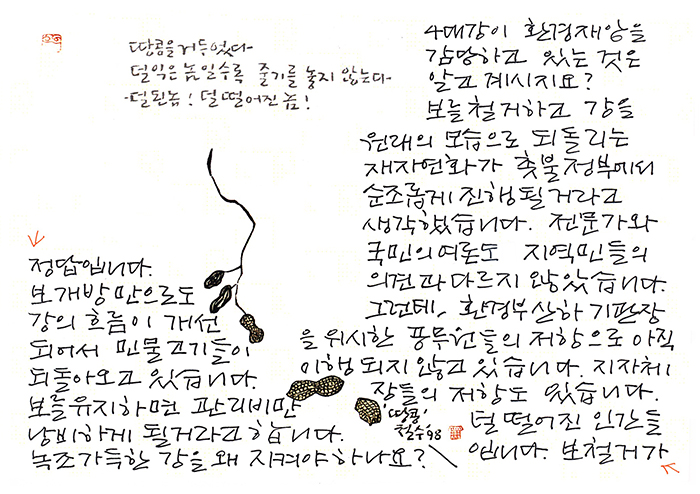 땅콩을 거두었다-
덜익은 놈일수록 줄기를 놓지 않는다-
-덜된놈! 덜 떨어진 놈!
4대강이 환경재앙을
감당하고 있는 것은
알고 계시지요?
보를 철거하고 강을
원래의 모습으로 되돌리는
재자연화가 촛불정부에서
순조롭게 진행될거라고
생각했습니다. 전문가와
국민의 여론도 지역민들의
의견과 다르지 않았습니다.
그런데, 환경부산하 기관장
을 위시한 공무원들의 저항으로 아직
이행되지 않고 있습니다. 지자체
장들의 저항도 있습니다.
덜 떨어진 인간들
입니다. 보철거가
정답입니다.
보개방만으로도
강의 흐름이 개선
되어서 민물고기들이
되돌아오고 있습니다.
보를유지하면 관리비만
낭비하게 될거라고 합니다.
녹조가득한 강을 왜 지켜야 하나요?
'땅콩'
철수98